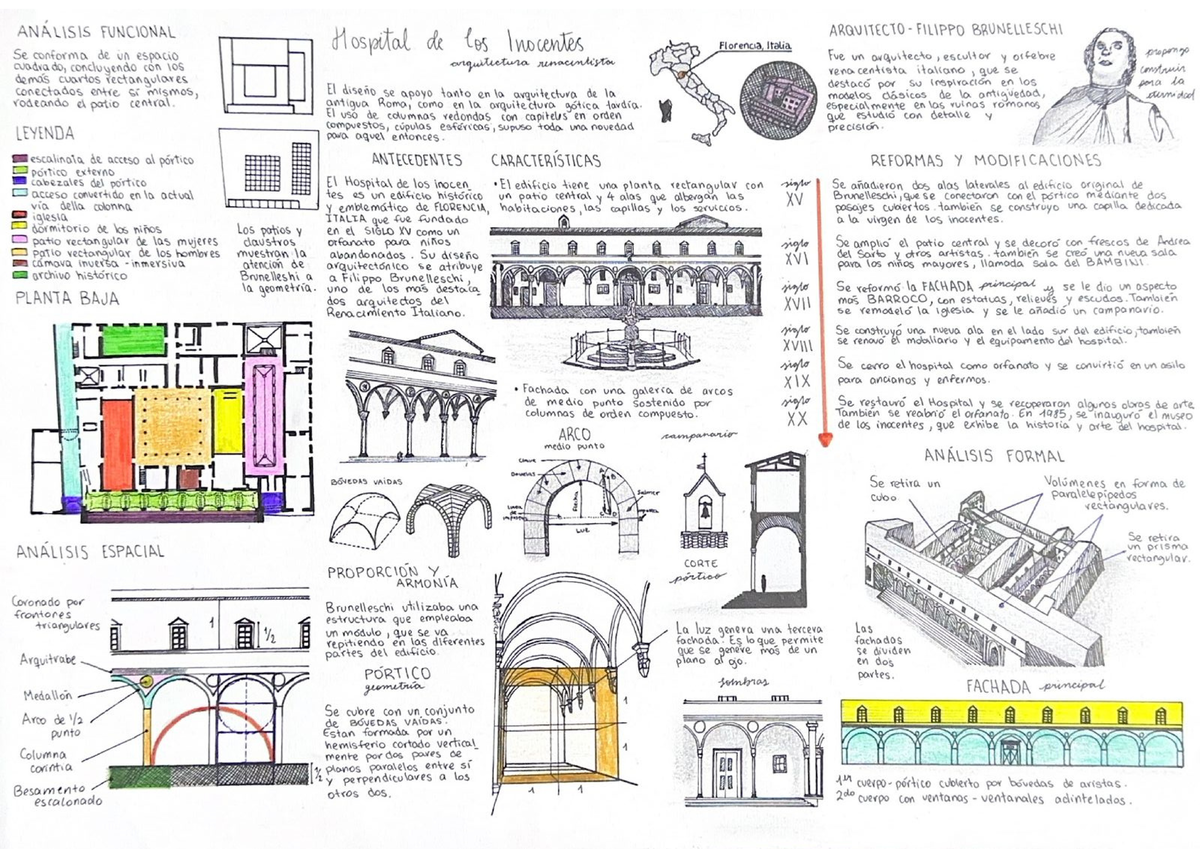 ANÁLISIS FUNCIONAL
Se conforma de un espacio
cuadrado, concluyendo con los
demás cuartos rectangulares
conectados entre sí mismos,
rodeando el patio central.
LEYENDA
escalinata de acceso al pórtico
pórtico externo
cabezales del pórtico
acceso convertido en la actual
vía della colonna
iglesia
dormitorio de los niños
patio rectangular de las mujeres
patio rectangular de los hombres
cámara inversa - inmersiva
archivo histórico
Los patios y
claustros
muestran la
atención de
Brunelleshi a
la geometría.
PLANTA BAJA
Hospital de los Inocentes
arquitectura renacintista
El diseño se apoyo tanto en la arquitectura de la
antigua Roma, como en la arquitectura gótica tardía.
El uso de columnas redondas con capiteles en orden
compuestos, cúpulas esféricas, supuso toda una novedad
para aquel entonces.
Florencia, Italia
ARQUITECTO - FILIPPO BRUNELLESCHI
Fue un arquitecto, escultor y orfebre
renacentista italiano, que se
destacó por su inspiración en los
modelos clásicos de la antigüedad,
especialmente en las ruinas romanas
que estudió con detalle y
precisión.
propongo
construir
para la
eternidad
ANTECEDENTES
El Hospital de los inocen
tes es un edificio histórico
y emblemático de FLORENCIA,
ITALIA que fue fundado
en el SIGLO XV como un
orfanato para niños
abandonados. Su diseño
arquitectónico se atribuye
a Filippo Brunelleschi,
uno de los más destaca_
dos arquitectos del
Renacimiento Italiano.
CARACTERÍSTICAS
• El edificio tiene una planta rectangular con
un patio central y 4 alas que albergan las
habitaciones, las capillas y los servicios.
• Fachada con una galería de arcos
de medio punto sostenido por
columnas de orden compuesto.
REFORMAS Y MODIFICACIONES
siglo
XV
Se añadieron dos alas laterales al edificio original de
Brunelleschi, que se conectaron con el pórtico mediante dos
pasajes cubiertos. también se construyo una capilla dedicada
a la virgen de los inocentes.
siglo
XVI
Se amplió el patio central y se decoró con frescos de Andrea
del Sarto y otros artistas. también se creó una nueva sala
para los niños mayores, llamada sala del BAMBINI.
siglo
XVII
Se reformó la FACHADA principal y se le dio un aspecto
más BARROCO, con estatuas, relieves y escudos. También
se remodeló la iglesia y se le añadió un campanario.
siglo
XVIII
Se construyó una nueva ala en el lado sur del edificio, también
se renovó el mobiliario y el equipamento del hospital.
siglo
XIX
Se cerro el hospital como orfanato y se convirtió en un asilo
para ancianos y enfermos.
siglo
XX
Se restauró el Hospital y se recuperaron algunas obras de arte.
También se reabrió el orfanato. En 1985, se inauguró el museo
de los inocentes, que exhibe la historia y arte del hospital.
BÓVEDAS VAÍDAS
ARCO
medio punto
CLAVE
DOVELAS
FLECHA
LUZ
campanario
CORTE
pórtico
ANÁLISIS FORMAL
Se retira un
cubo
Volúmenes en forma de
paralelepípedos
rectangulares.
Se retira
un prisma
rectangular.
Las
fachadas
se dividen
en dos
partes.
ANÁLISIS ESPACIAL
Coronado por
frontones
triangulares
Arquitrabe
Medallón
Arco de 1/2
punto
Columna
corintia
Besamento
escalonado
1
1/2
1/2
PROPORCIÓN Y
ARMONÍA
Brunelleschi utilizaba una
estructura que empleaba
un módulo, que se va
repitiendo en las diferentes
partes del edificio.
PÓRTICO
geometría
Se cubre con un conjunto
de BÓVEDAS VAÍDAS.
Estan formada por un
hemisferio cortado vertical_
mente por dos pares de
planos paralelos entre sí
y perpendiculares a los
otros dos.
1
1
1
1
La luz genera una tercera
fachada. Es lo que permite
que se genere más de un
plano al ojo.
sombras
FACHADA principal
1er cuerpo - pórtico cubierto por bóvedas de aristas.
2do cuerpo con ventanas - ventanales adintelados.